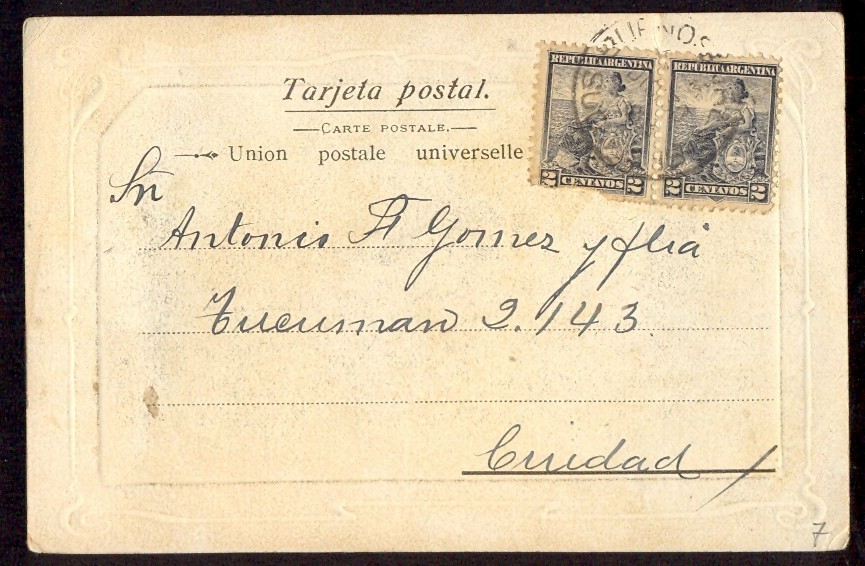 Tarjeta postal.
CARTE POSTALE.
Union postale universelle
REPUBLICA ARGENTINA
2 CENTAVOS 2
REPUBLICA ARGENTINA
2 CENTAVOS 2
Sr
Antonio F Gomez y flia
Tucuman 2.143
Ciudad
7